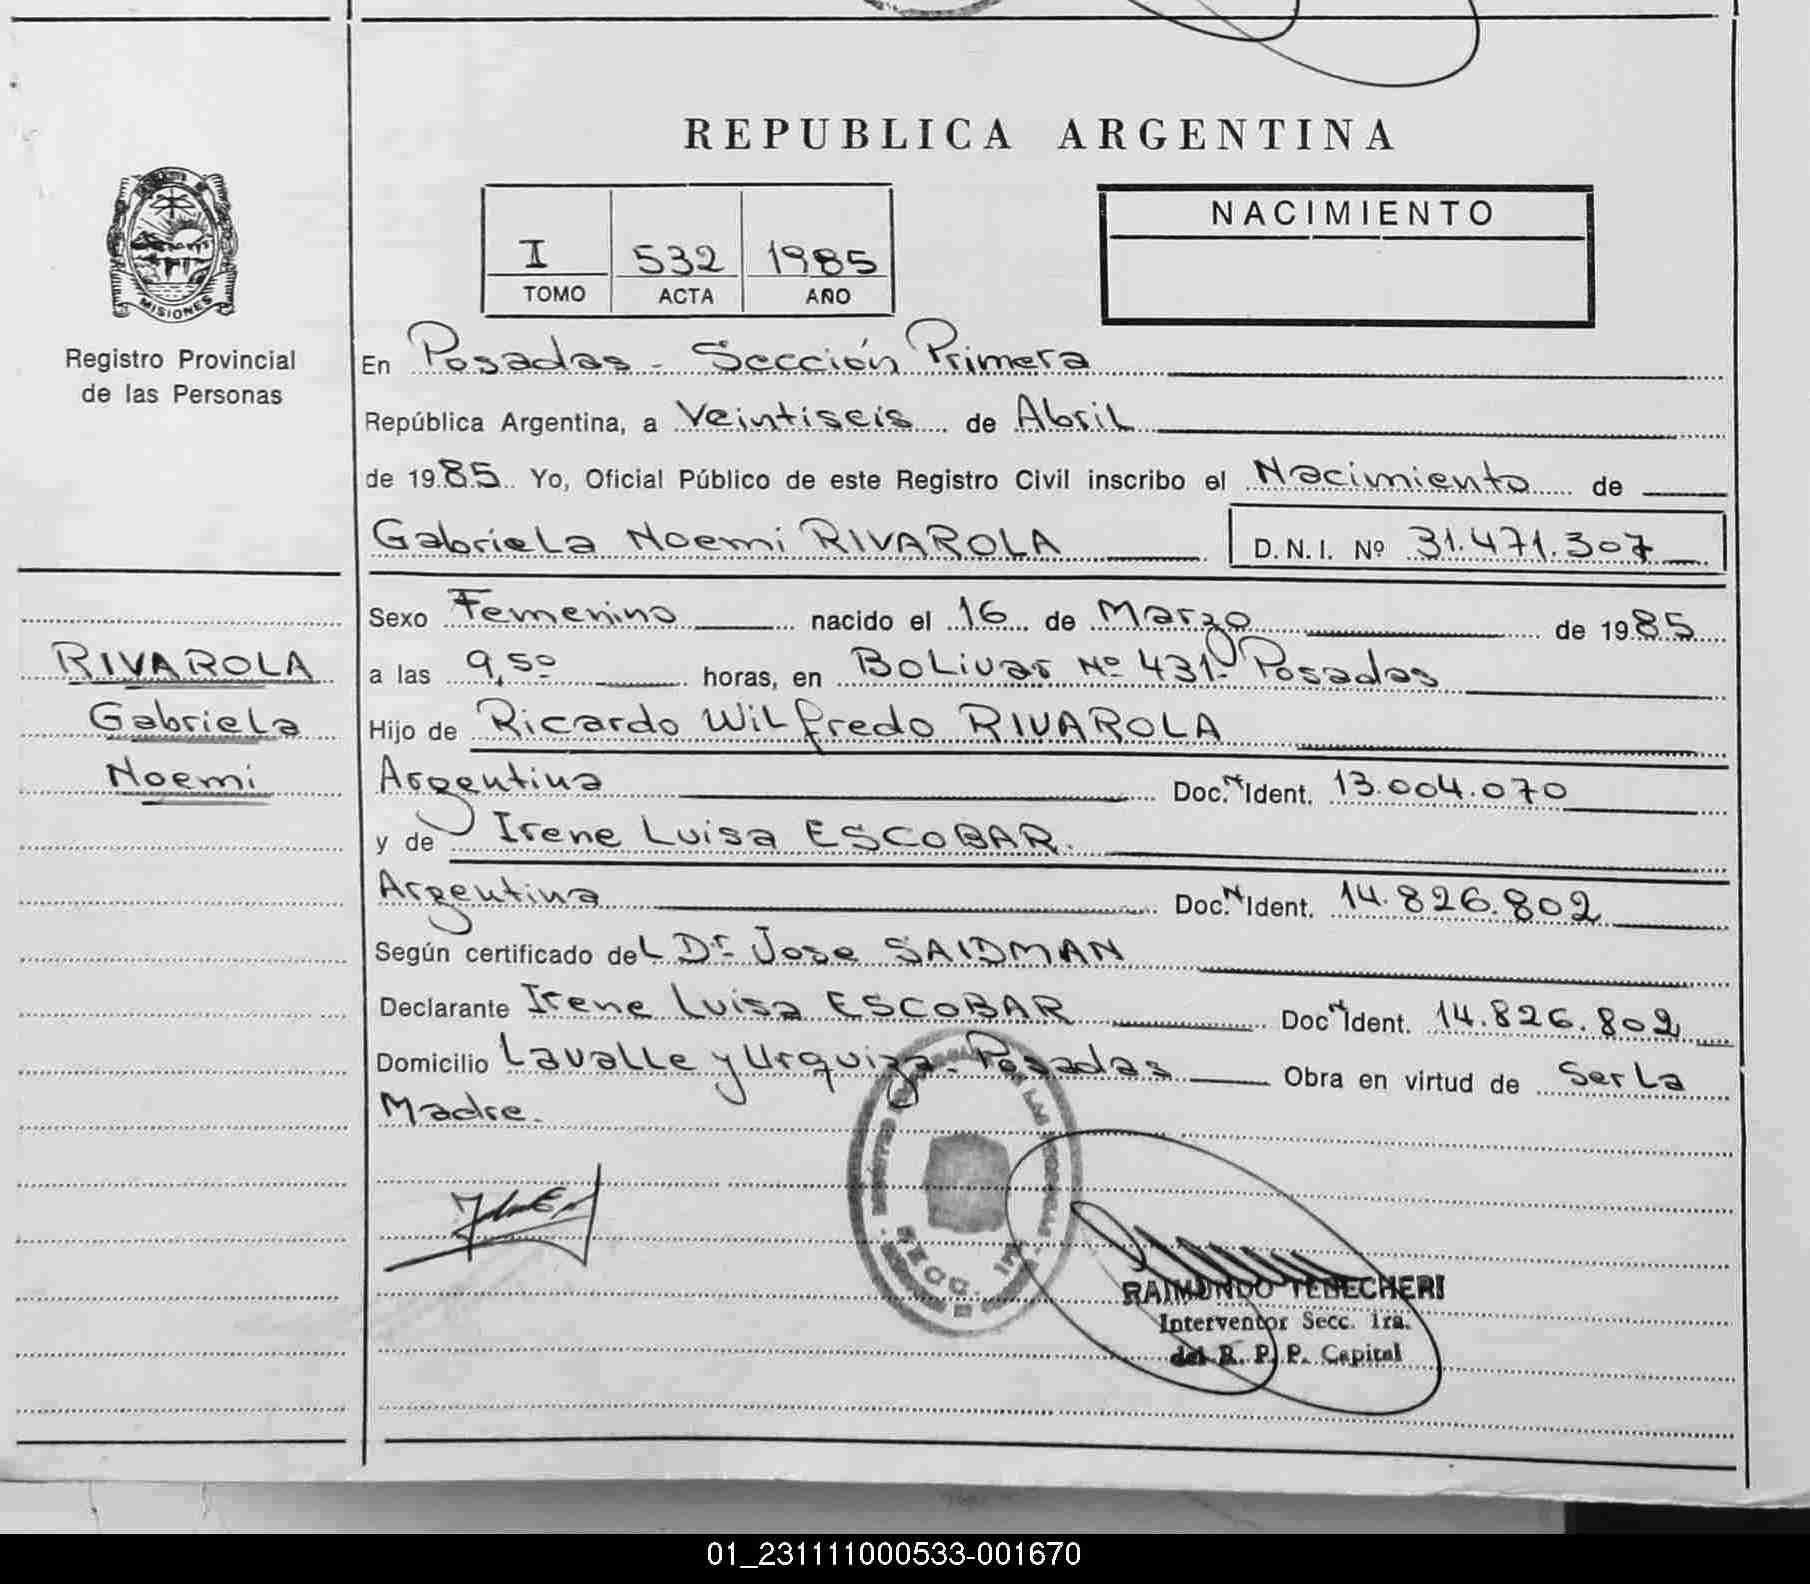 REPUBLICA ARGENTINA
NACIMIENTO
I 532 1985
TOMO ACTA AÑO
MISIONES
Registro Provincial
de las Personas
En Posadas - Sección Primera
República Argentina, a Veintiseis de Abril
de 1985 Yo, Oficial Público de este Registro Civil inscribo el Nacimiento de
Gabriela Noemi RIVAROLA D.N.I. Nº 31.471.307
Sexo Femenino nacido el 16 de Marzo de 1985
a las 9,50 horas, en Bolivar Nº 431- Posadas
Hijo de Ricardo Wilfredo RIVAROLA
Argentina Doc. N Ident. 13.004.070
y de Irene Luisa ESCOBAR.
Argentina Doc. N Ident. 14.826.802
Según certificado del Dr. Jose SAIDMAN
Declarante Irene Luisa ESCOBAR Doc N Ident. 14.826.802
Domicilio Lavalle y Urquiza- Posadas Obra en virtud de Ser La
Madre.
RIVAROLA
Gabriela
Noemi
SECC. 1ra
RAIMUNDO TEBECHERI
Interventor Secc. 1ra.
del R. P. P. Capital
01_231111000533-001670